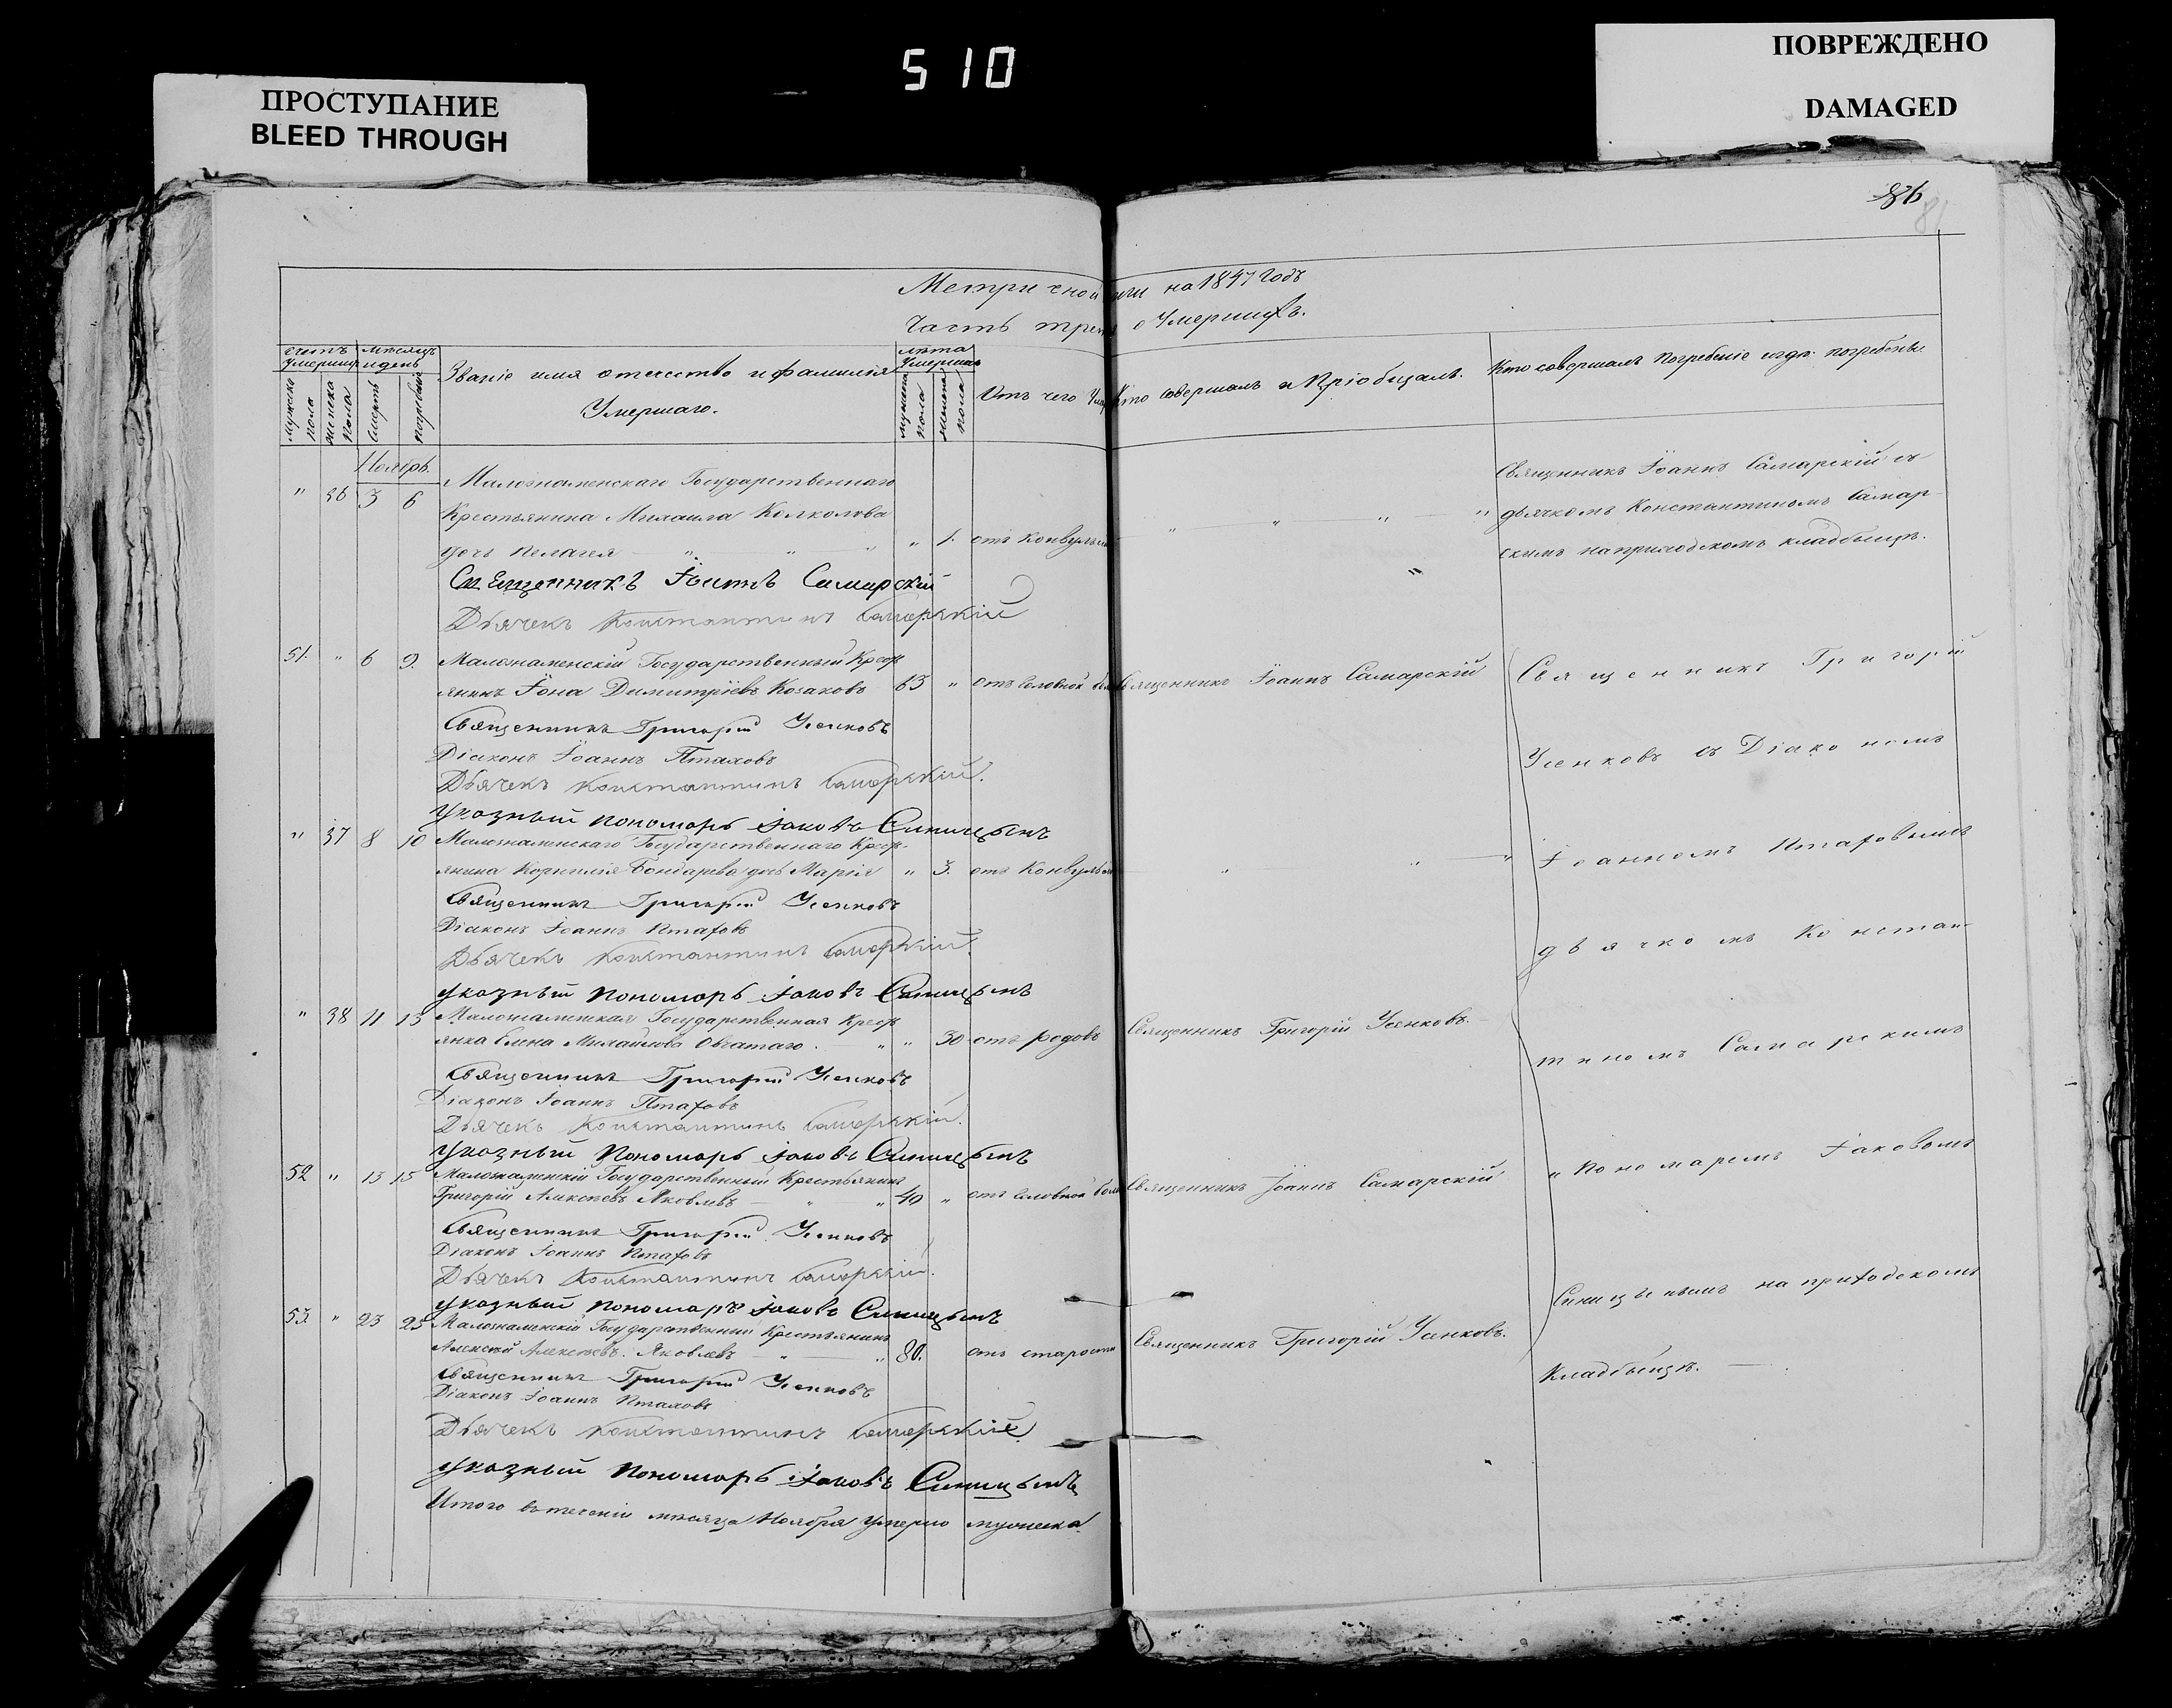 510
ПРОСТУПАНИЕ
BLEED THROUGH
ПОВРЕЖДЕНО
DAMAGED
86
81
Метричной на 1847 годъ
Часть трет о Умершихъ.
счетъ умерших
мѣсяцъ и день
Званіе имя отечество и фамилія
Умершаго.
лѣта Умершаго
Отъ чего
Кто совершалъ и Пріобщалъ.
Кто совершалъ погребеніе и гдѣ погребены.
мужеска пола
женска пола
смерть
погребенія
мужеска пола
женска пола
Ноябрь.
" 36 3 6 Малознаменскаго Государственнаго
Крестьянина Михаила Колколова
дочь Пелагея " " " " 1. отъ Конвульсіи
" " " "
Священникъ Іоаннъ Самарскій съ
дьячкомъ Константиномъ Самар-
скимъ на приходскомъ кладбыщѣ.
Священникъ Іоаннъ Самарскій
Дьячекъ Константинъ Самарскій
51. " 6 9. Малознаменскій Государственный Крест
янинъ Іона Димитріевъ Козаковъ 63 " отъ Головной бол Священникъ Іоаннъ Самарскій
Священникъ Григорій Усенковъ
Діаконъ Іоаннъ Птаховъ
Дьячекъ Константинъ Самарскій.
Указный пономарь Іаковъ Синицынъ
" 37 8 10 Малознаменскаго Государственнаго Крест-
янина Корнилія Бондарева дочь Марія " 3. отъ Конвульсіи " " "
Священникъ Григорій Усенковъ
Діаконъ Іоаннъ Птаховъ
Дьячекъ Константинъ Самарскій.
Указный пономарь Іаковъ Синицынъ
" 38 11 13 Малознаменская Государственная Крест
янка Елена Михайлова Овчатаго. " " 30 отъ родовъ Священникъ Григорій Усенковъ.
Священникъ Григорій Усенковъ
Діаконъ Іоаннъ Птаховъ
Дьячекъ Константинъ Самарскій.
Указный Пономарь Іаковъ Синицынъ
52 " 13 15 Малознаменскій Государственный Крестьянинъ
Григорій Алексѣевъ Яковлевъ " " 40 " отъ Головной бол Священникъ Іоаннъ Самарскій
Священникъ Григорій Усенковъ
Діаконъ Іоаннъ Птаховъ
Дьячекъ Константинъ Самарскій.
Указный пономарь Іаковъ Синицынъ
53. " 23 25 Малознаменскій Государственный Крестьянинъ
Алексѣй Алексѣевъ. Яковлевъ " " 80. отъ старости Священникъ Григорій Усенковъ.
Священникъ Григорій Усенковъ
Діаконъ Іоаннъ Птаховъ
Дьячекъ Константинъ Самарскій
Указный Пономарь Іаковъ Синицынъ
Итого въ теченіи мѣсяца Ноября умерло мужеска
Священникъ Григорій
Усенковъ съ Діакономъ
Іоанномъ Птаховымъ
дьячкомъ Констан-
тиномъ Самарскимъ
и Пономаремъ Іаковомъ
Синицынымъ на приходскомъ
Кладбыщѣ.